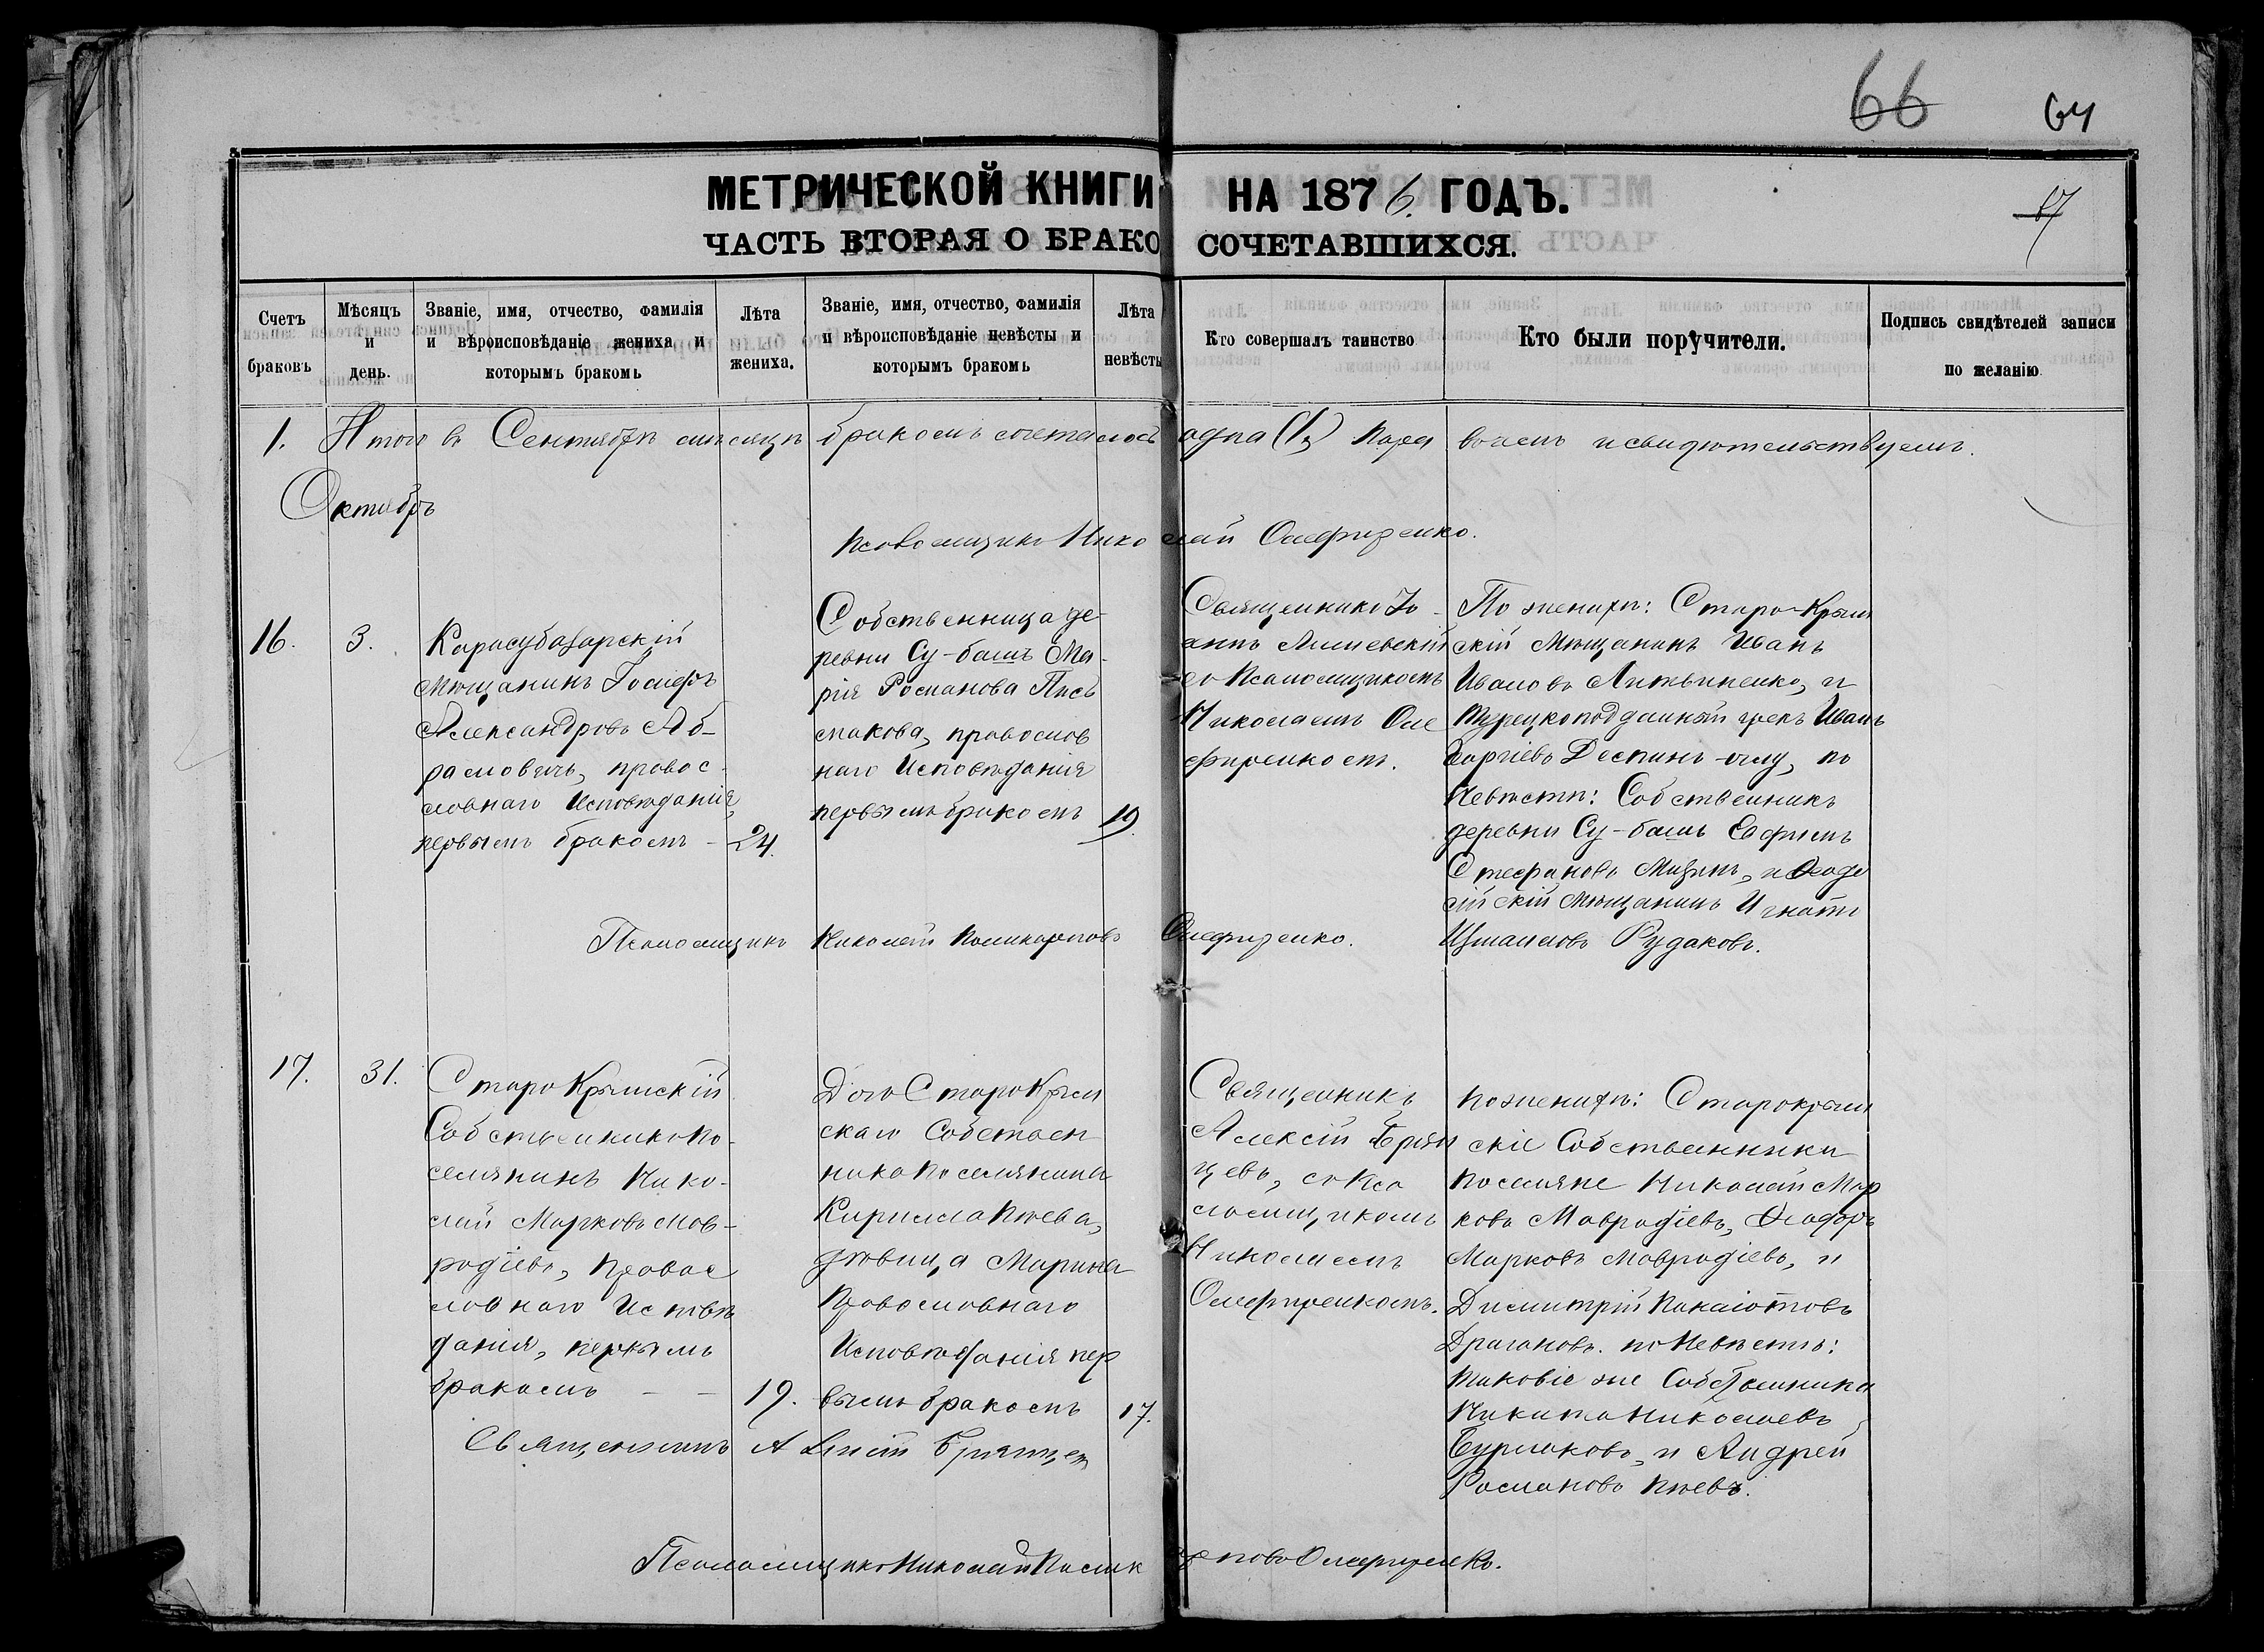 66 64
МЕТРИЧЕСКОЙ КНИГИ НА 1876. ГОДЪ.
ЧАСТЬ ВТОРАЯ О БРАКОСОЧЕТАВШИХСЯ.
Счетъ браковъ
Мѣсяцъ и день.
Званіе, имя, отчество, фамилія
и вѣроисповѣданіе жениха и
которымъ бракомъ
Лѣта
жениха.
Званіе, имя, отчество, фамилія
и вѣроисповѣданіе невѣсты и
которымъ бракомъ
Лѣта
невѣсты
Кто совершалъ таинство
Кто были поручители.
Подпись свидѣтелей записи
по желанію
1. Итого въ Сентябрѣ мѣсяцѣ бракомъ сочеталось одна (1) пара въ чемъ и свидѣтельствуемъ.
Октябрь
Псаломщикъ Николай Олефиренко.
16. 3.
Карасубазарскій
мѣщанинъ Іосифъ
Александровъ Аб-
рамовичъ, правос-
лавнаго Исповѣданія,
первымъ бракомъ – 24.
Собственница де-
ревни Су-башъ Ма-
рія Романова Пись
макова, православ
наго Исповѣданія
первымъ бракомъ 19.
Священникъ Іо-
аннъ
съ Псаломщикомъ
Николаемъ Оле
фиренкомъ.
По женихѣ: Старо-Крым
скій Мѣщанинъ Иванъ
Ивановъ Литвиненко, и
турецкоподданный грекъ Иванъ
Георгіевъ Деспинъ-оглу, по
Невѣстѣ: Собственникъ
деревни Су-башъ Евфимъ
Стефановъ и Ѳеодо
сійскій Мѣщанинъ Игнатъ
Измаиловъ Рудаковъ.
Псаломщикъ Николай Поликарповъ Олефиренко.
17. 31.
Старо Крымскій
Собственникъ По-
селянинъ Нико-
лай Марковъ Мав-
родіевъ, Правос
лавнаго Исповѣ
данія, первымъ
бракомъ – – 19.
Дочь Старо Крым
скаго Собствен
ника Поселянина
Кирилла Пѣева,
дѣвица Марина
Православнаго
Исповѣданія пер
вымъ бракомъ 17.
Священникъ
Алексій Брян
цевъ, съ Пса
ломщикомъ
Николаемъ
Олефиренкомъ.
По женихѣ: Старокрым
скіе Собственники
Поселяне Николай Мар
ковъ Мавродіевъ, Ѳеодоръ
Марковъ Мавродіевъ, и
Димитрій Панаіотовъ
Драгановъ. по Невѣстѣ:
таковіе же Собственники
Никита Николаевъ
Бурлаковъ, и Андрей
Романовъ Пѣевъ.
Священникъ Алексій Брянцевъ
Псаломщикъ Николай Поликарповъ Олефиренко.